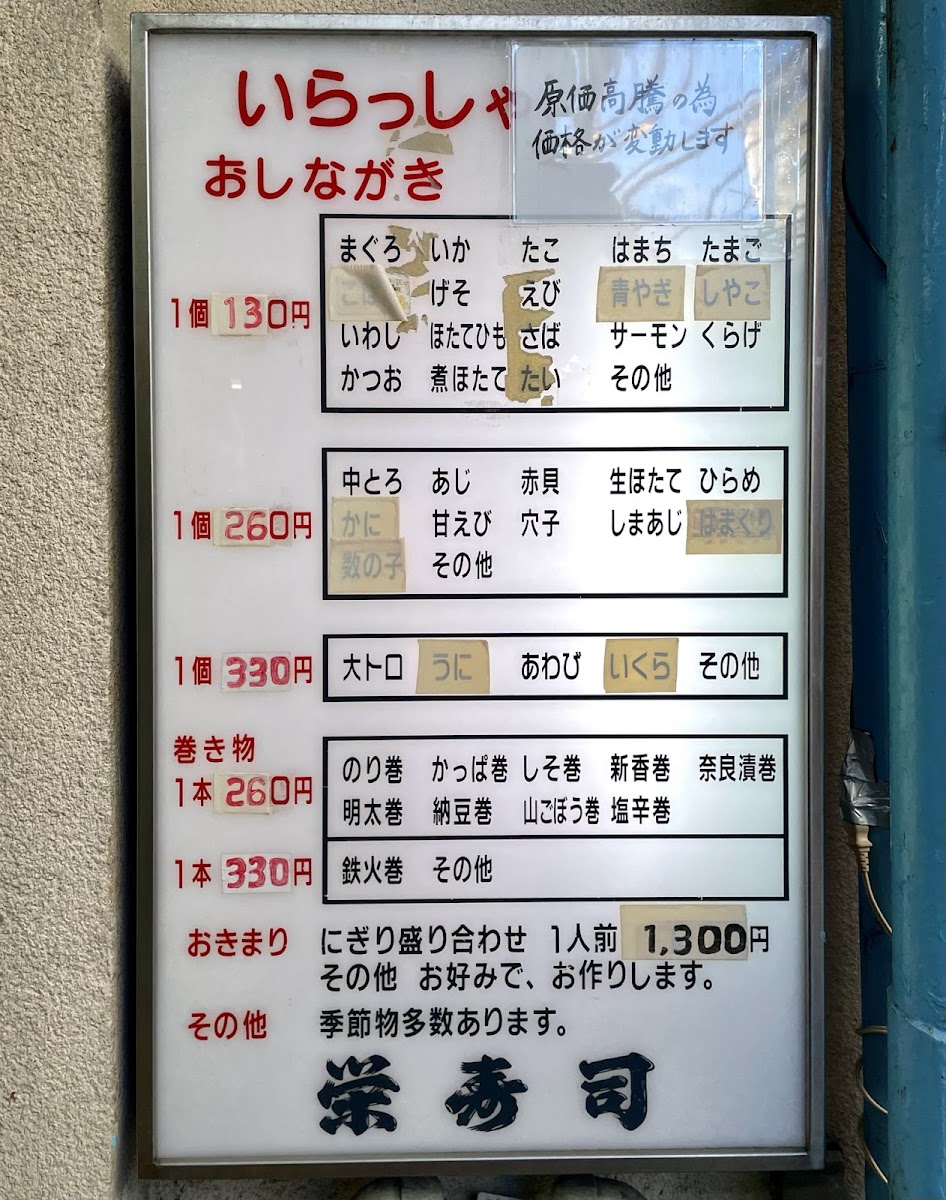 いらっしゃ
原価高騰の為
価格が変動します
おしながき
1個 130円
まぐろ いか たこ はまち たまご
げそ えび 青やぎ しやこ
いわし ほたてひも さば サーモン くらげ
かつお 煮ほたて たい その他
1個 260円
中とろ あじ 赤貝 生ほたて ひらめ
かに 甘えび 穴子 しまあじ はまぐり
数の子 その他
1個 330円
大トロ うに あわび いくら その他
巻き物
1本 260円
のり巻 かっぱ巻 しそ巻 新香巻 奈良漬巻
明太巻 納豆巻 山ごぼう巻 塩辛巻
1本 330円
鉄火巻 その他
おきまり にぎり盛り合わせ 1人前 1,300円
その他 お好みで、お作りします。
その他 季節物多数あります。
栄寿司